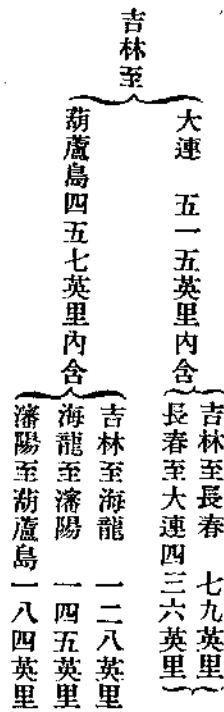 吉林至
大連　五一五英里內含
吉林至長春　七九英里
長春至大連四三六英里
葫蘆島四五七英里內含
吉林至海龍　一二八英里
海龍至瀋陽　一四五英里
瀋陽至葫蘆島一八四英里